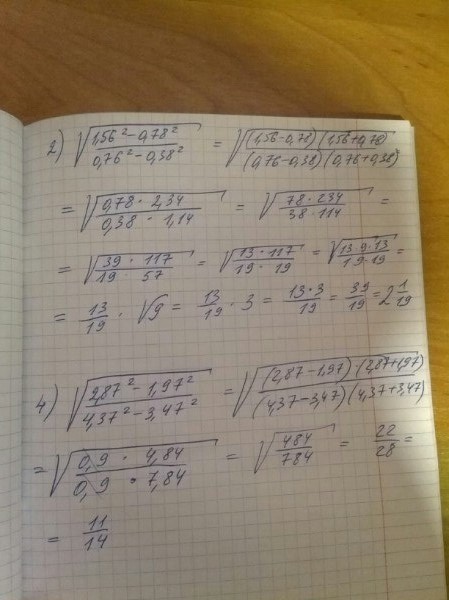 2) √((1,56² − 0,78²)/(0,76² − 0,38²)) = √(((1,56 − 0,78)(1,56 + 0,78))/((0,76 − 0,38)(0,76 + 0,38)))
= √((0,78 · 2,34)/(0,38 · 1,14)) = √((78 · 234)/(38 · 114)) =
= √((39 · 117)/(19 · 57)) = √((13 · 117)/(19 · 19)) = √((13·9·13)/(19·19)) =
= 13/19 · √9 = 13/19 · 3 = (13·3)/19 = 39/19 = 2 1/19
4) √((2,87² − 1,97²)/(4,37² − 3,47²)) = √(((2,87 − 1,97)·(2,87+1,97))/((4,37 − 3,47)(4,37+3,47)))
= √((0,9 · 4,84)/(0,9 · 7,84)) = √(484/784) = 22/28 =
= 11/14